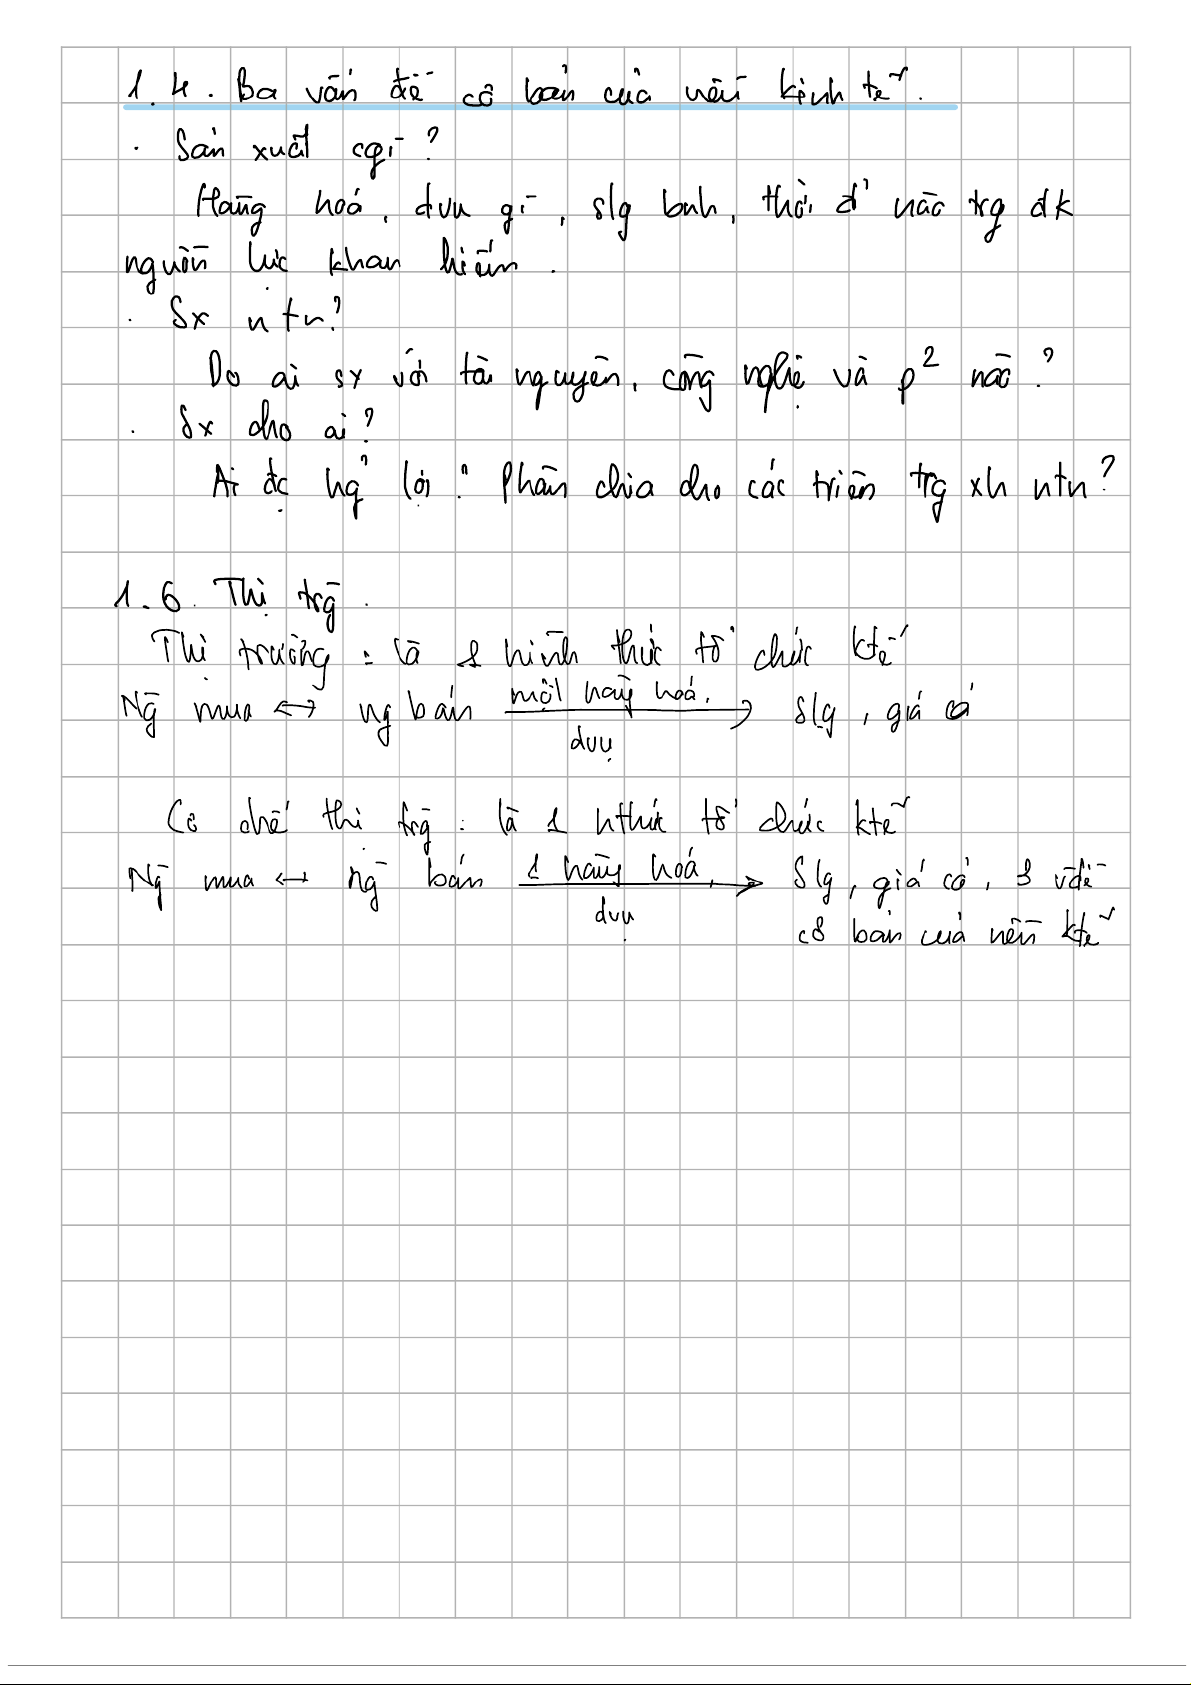 1.4. Ba vấn đề cơ bản của nền kinh tế.
. Sản xuất cgì?
Hàng hoá, dvụ gì, slg bnh, thời đ' nào trg đk
nguồn lực khan hiếm.
. Sx ntn?
Do ai sx với tài nguyên, công nghệ và p² nào?
. Sx cho ai?
Ai đc hg' lợi? Phân chia cho các trg xh ntn?
1.6. Thị trg.
Thị trường: là 1 hình thức tổ chức ktế
Ng mua ↔ ng bán một hàng hoá, → slg, giá cả
dvụ
Cơ chế thị trg: là 1 hthức tổ chức ktế
Ng mua ↔ ng bán 1 hàng hoá, → Slg, giá cả, 3 vđề
dvụ cơ bản của nền ktế